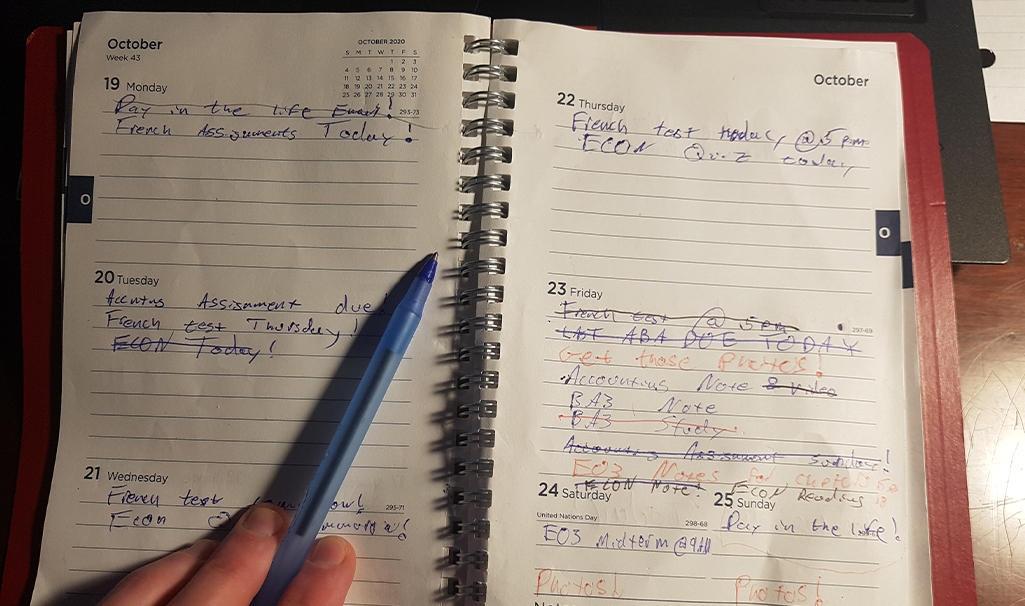 October
Week 43
OCTOBER 2020
S M T W T F S
1 2 3
4 5 6 7 8 9 10
11 12 13 14 15 16 17
18 19 20 21 22 23 24
25 26 27 28 29 30 31
19 Monday
293-73
Day in the life
French Assignments Today!
O
20 Tuesday
Accntng Assignment due!
French test Thursday!
ECON Today!
21 Wednesday
295-71
French test
Econ
October
22 Thursday
French test today @ 5 pm
ECON Quiz today
O
23 Friday
297-69
French test @ 5pm
LAST ABA DUE TODAY
Get those Photos!
Accounting Note & video
BA3 Note
BA3 Study
Accounting Assignment Sunday!
EO3 Notes for chpt
ECON Note! ECON Reading
24 Saturday
United Nations Day
298-68
EO3 Midterm @ 9AM
Photos!
25 Sunday
Day in the life!
Photos!